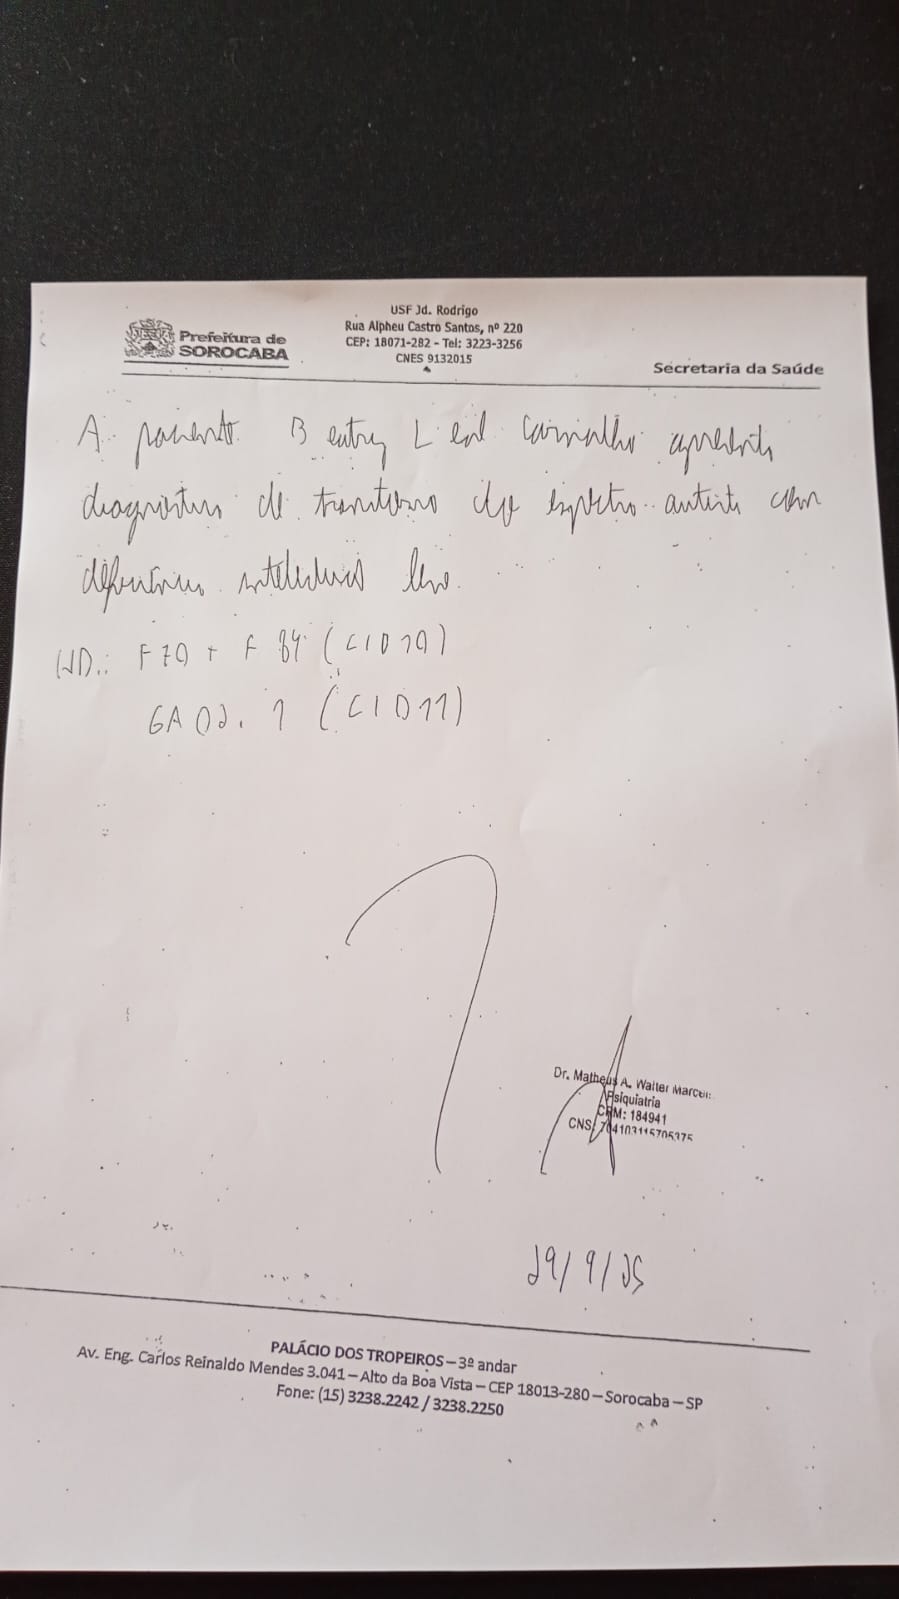 USF Jd. Rodrigo
Rua Alpheu Castro Santos, nº 220
CEP: 18071-282 - Tel: 3223-3256
CNES 9132015
Prefeitura de
SOROCABA
Secretaria da Saúde
A paciente Leal Carvalho apresenta
diagnóstico de transtorno do espectro autista com
deficiência intelectual leve.
F70 + F84 (CID10)
6A02.1 (CID11)
Dr. Matheus A. Walter
Psiquiatria
CRM: 184941
CNS:
29/9/25
PALÁCIO DOS TROPEIROS – 3º andar
Av. Eng. Carlos Reinaldo Mendes 3.041 – Alto da Boa Vista – CEP 18013-280 – Sorocaba – SP
Fone: (15) 3238.2242 / 3238.2250